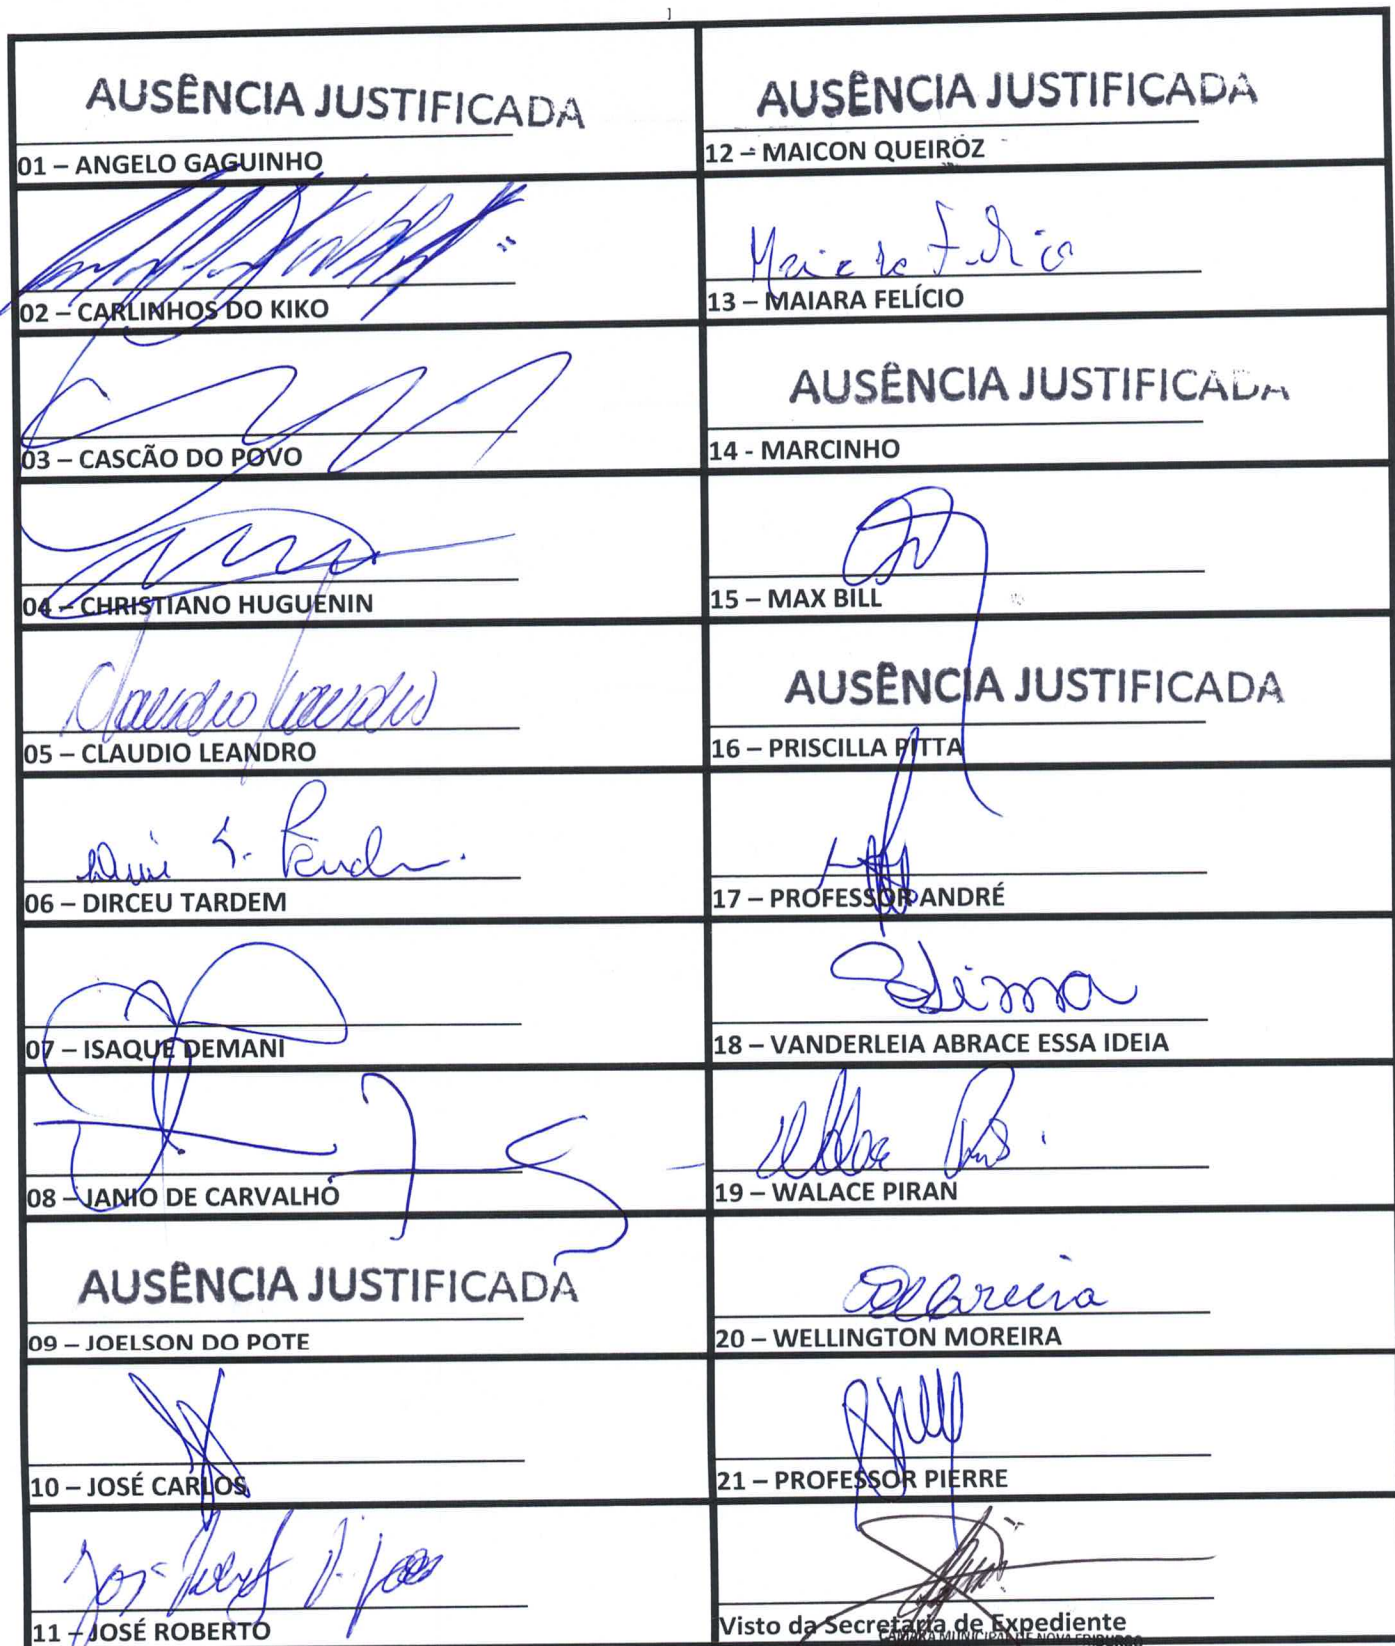 AUSÊNCIA JUSTIFICADA
01 – ANGELO GAGUINHO
02 – CARLINHOS DO KIKO
03 – CASCÃO DO POVO
04 – CHRISTIANO HUGUENIN
Claudio Leandro
05 – CLAUDIO LEANDRO
06 – DIRCEU TARDEM
07 – ISAQUE DEMANI
08 – JANIO DE CARVALHO
AUSÊNCIA JUSTIFICADA
09 – JOELSON DO POTE
10 – JOSÉ CARLOS
11 – JOSÉ ROBERTO
AUSÊNCIA JUSTIFICADA
12 – MAICON QUEIRÓZ
Maiara Felício
13 – MAIARA FELÍCIO
AUSÊNCIA JUSTIFICADA
14 - MARCINHO
15 – MAX BILL
AUSÊNCIA JUSTIFICADA
16 – PRISCILLA PITTA
17 – PROFESSOR ANDRÉ
18 – VANDERLEIA ABRACE ESSA IDEIA
19 – WALACE PIRAN
20 – WELLINGTON MOREIRA
21 – PROFESSOR PIERRE
Visto da Secretaria de Expediente
CÂMARA MUNICIPAL DE NOVA FRIBURGO